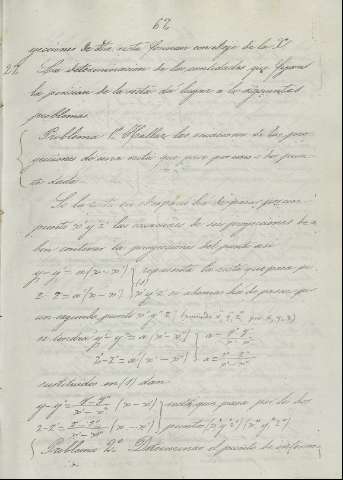 62
yecciones de dha recta forman con el eje de la X
27 La determinacion de las cantidades que fijan
la posicion de la recta da lugar a los siguientes
problemas
Problema 1º Hallar las ecuaciones de las pro-
yecciones de una recta que pase por uno o dos pun-
tos dados.
Si la recta en el espacio ha de pasar por un
punto x'y'z' las ecuaciones de sus proyecciones ha
ben contener las proyecciones del punto asi
y-y'=a(x-x') representa la recta que pasa por
z-z'=a'(x-x') (1) x'y'z' si ademas ha de pasar por
un segundo punto x''y''z''
se tendra y'-y''=a(x'-x'') a=
z'-z''=a'(x'-x'') a'=
sustituidos en (1) dan
y-y'= (x-x') recta que pasa por los dos
z-z'= (x-x') puntos (x'y'z') (x''y''z'')
Problema 2º Determinar el punto de interse